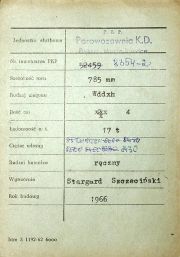 P.K.P.
Jednostka służbowa Parowozownia K.D.
Nr inwentarza PKP 58459 8654-2
Szerokość toru 785 mm
Rodzaj wagonu Wddxh
Ilość osi xxx 4
Ładowność w t. 17 t
Ciężar własny 8430
Rodzaj hamulca ręczny
Wytwórnia Stargard Szczeciński
Rok budowy 1966